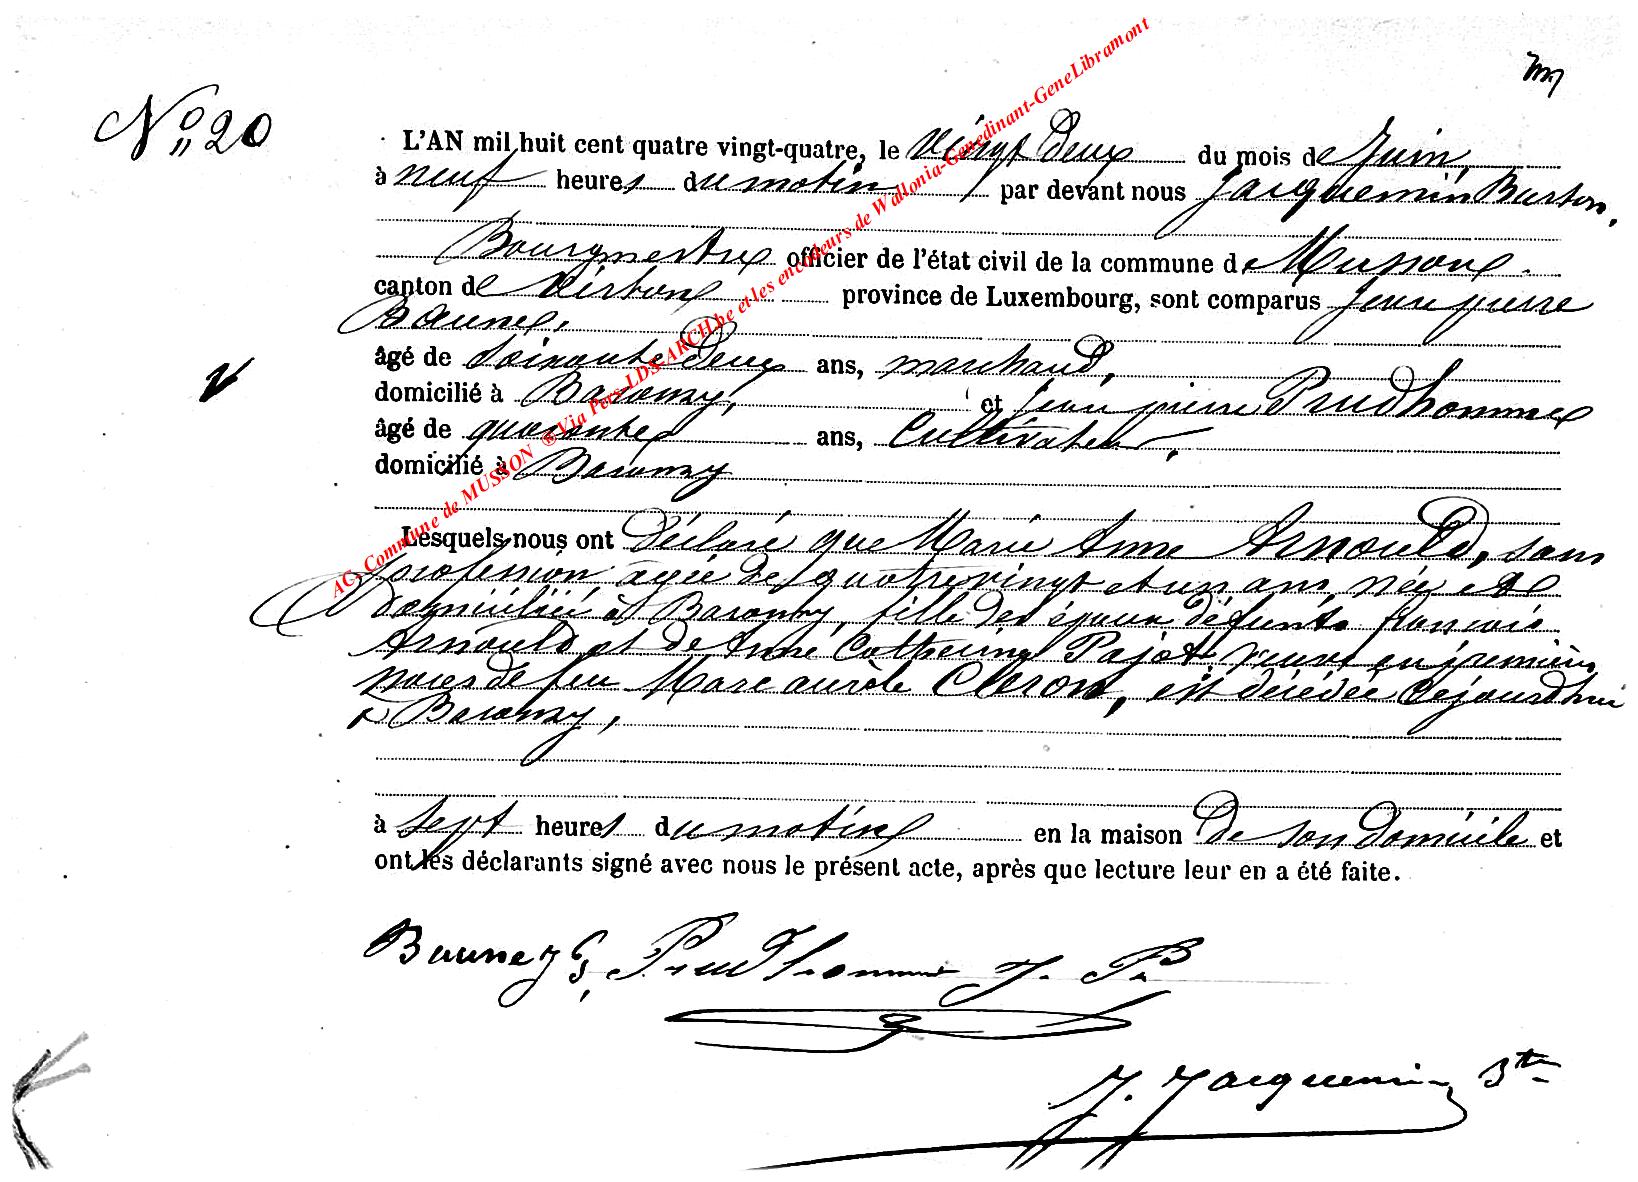 N° 20
L'AN mil huit cent quatre vingt-quatre, le vingt deux du mois de Juin
à neuf heures du matin par devant nous Jacquemin Burton,
Bourgmestre officier de l'état civil de la commune de Musson
canton de Virton province de Luxembourg, sont comparus Jean pierre
Baunez,
âgé de soixante deux ans, marchand,
domicilié à Baranzy, et Jean pierre Prudhomme
âgé de quarante ans, Cultivateur,
domicilié à Baranzy
Lesquels nous ont déclaré que Marie Anne Arnould, sans
profession agée de quatrevingt et un ans, née et
domiciliée à Baranzy, fille des époux défunts francois
Arnould et de Anne Catherine Pajot, veuve en premières
noces de feu Marc aurèle Cleron, est décédée cejourd'hui
à Baranzy,
à sept heures du matin en la maison de son domicile et
ont les déclarants signé avec nous le présent acte, après que lecture leur en a été faite.
Baunez Prudhomme J. P.
J. Jacquemin Btn
AG, Commune de MUSSON ® Via Pers-LDS-ARCH.be et les encodeurs de Wallonia-Genedinant-GeneLibramont